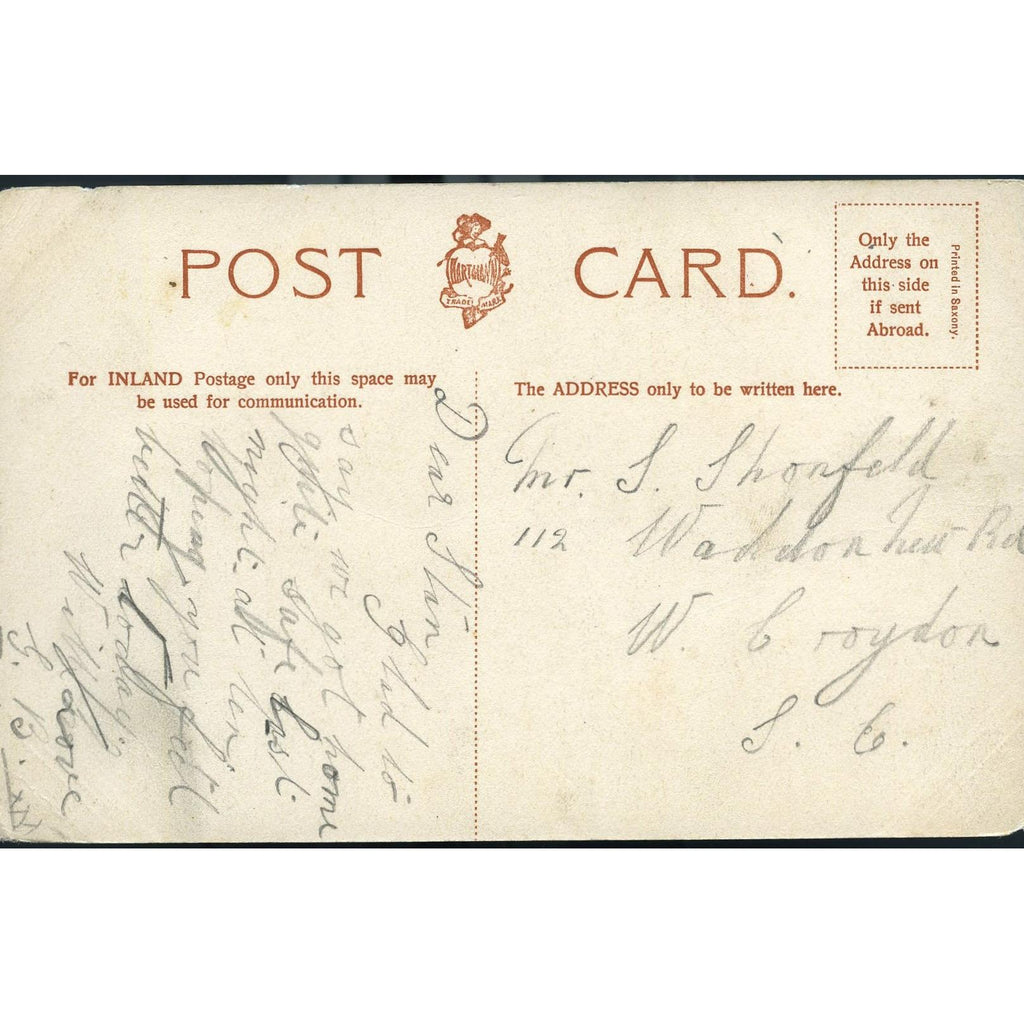 POST CARD.
HARTMANN
TRADE MARK
Only the
Address on
this side
if sent
Abroad.
Printed in Saxony.
For INLAND Postage only this space may
be used for communication.
The ADDRESS only to be written here.
Dear Stan
Glad to
say we got home
quite safe last
night all
hoping you feel
better today.
With Love
G. B.
Mr. S. Shonfeld
112 Waddon New Rd
W. Croydon
S. E.